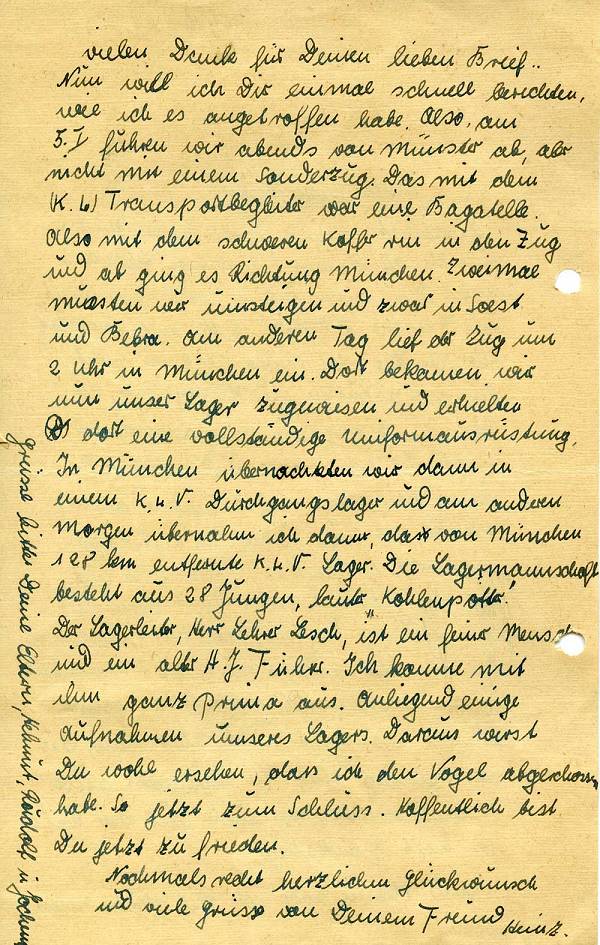 vielen Dank für Deinen lieben Brief..
Nun will ich Dir einmal schnell berichten,
wie ich es angetroffen habe. Also, am
5.I fuhren wir abends von Münster ab, aber
nicht mit einem Sonderzug. Das mit dem
(K.L.) Transportbegleiter war eine Bagatelle.
Also mit dem schweren Koffer rin in den Zug
und ab ging es Richtung München. Zweimal
mussten wir umsteigen und zwar in Soest
und Bebra. Am anderen Tag lief der Zug um
2 Uhr in München ein. Dort bekamen wir
nun unser Lager zugewiesen und erhielten
dort eine vollständige Uniformausrüstung.
In München übernachteten wir dann in
einem K.L.V. Durchgangslager und am anderen
Morgen übernahm ich dann, das von München
128 km entfernte K.L.V. Lager. Die Lagermannschaft
besteht aus 28 Jungen, lauter "Kohlenpötter".
Der Lagerleiter, Herr Lehrer Lesch, ist ein feiner Mensch
und ein alter H.J. Führer. Ich komme mit
ihm ganz prima aus. Anliegend einige
Aufnahmen unseres Lagers. Daraus wirst
Du wohl ersehen, dass ich den Vogel abgeschossen
habe. So jetzt zum Schluss. Hoffentlich bist
Du jetzt zufrieden.
Nochmals recht herzlichen Glückwunsch
und viele Grüsse von Deinem Freund Heinz.
Grüsse bitte Deine Eltern, Helmut, Rudolf u.